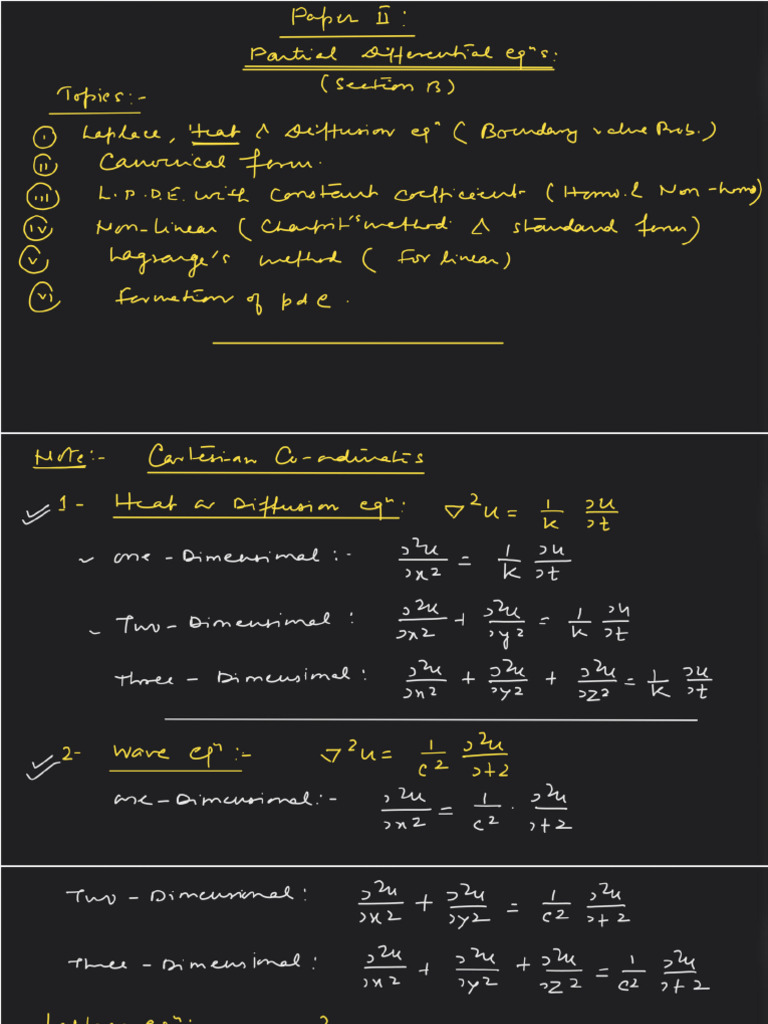 Paper II :
Partial Differential eqⁿs:
(Section B)
Topics:-
(i) Laplace, Heat & Diffusion eqⁿ ( Boundary value Prob.)
(ii) Canonical form.
(iii) L.P.D.E. with constant coefficient (Homo. & Non-homo)
(iv) Non-Linear ( Charpit's method & standard form)
(v) Lagrange's method ( For linear)
(vi) Formation of pde.
Note:- Cartesian Co-ordinates
1- Heat or Diffusion eqⁿ: ∇²u = 1/k ∂u/∂t
one-Dimensional:- ∂²u/∂x² = 1/k ∂u/∂t
Two-Dimensional: ∂²u/∂x² + ∂²u/∂y² = 1/k ∂u/∂t
Three-Dimensional: ∂²u/∂x² + ∂²u/∂y² + ∂²u/∂z² = 1/k ∂u/∂t
2- wave eqⁿ:- ∇²u = 1/c² ∂²u/∂t²
one-Dimensional:- ∂²u/∂x² = 1/c² · ∂²u/∂t²
Two-Dimensional: ∂²u/∂x² + ∂²u/∂y² = 1/c² ∂²u/∂t²
Three-Dimensional: ∂²u/∂x² + ∂²u/∂y² + ∂²u/∂z² = 1/c² ∂²u/∂t²